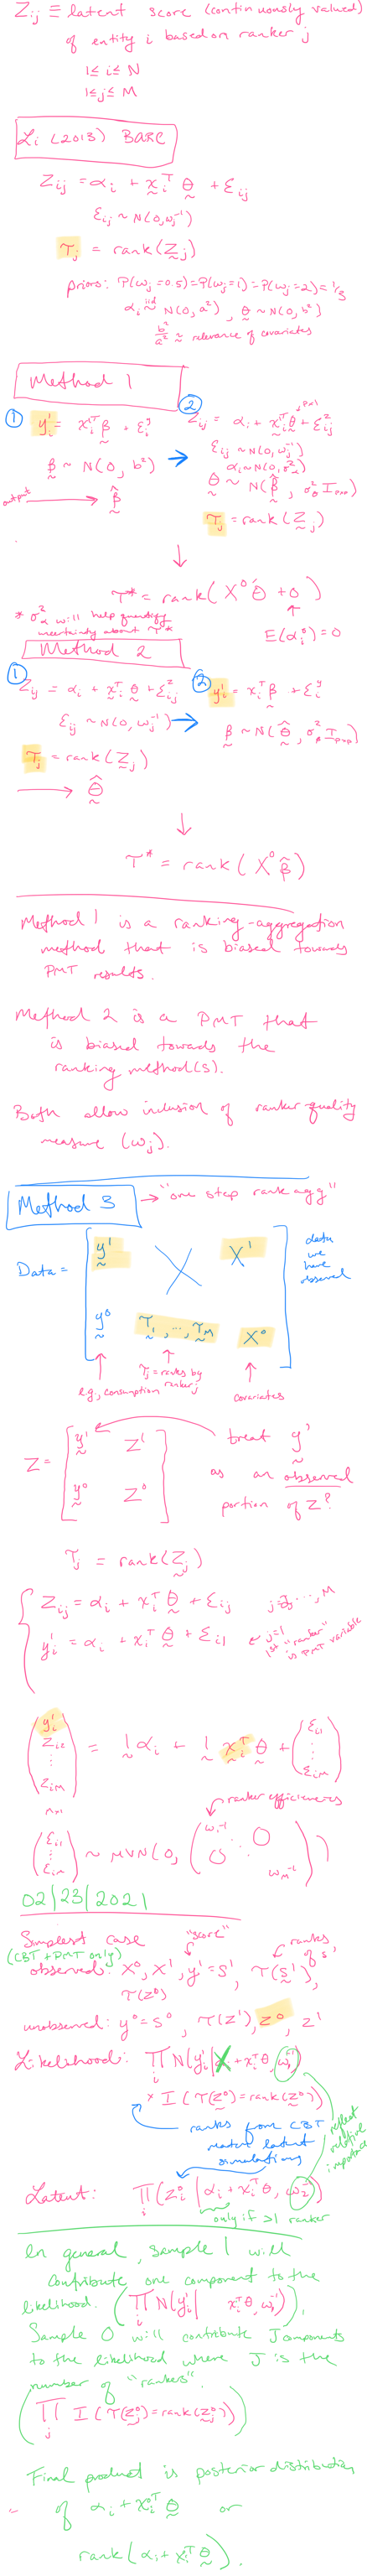 Z_ij ≡ latent score (continuously valued)
of entity i based on ranker j
1≤ i ≤ N
1≤ j ≤ M
Li (2013) BARC
Z_ij = α_i + x_i^T θ + ε_ij
ε_ij ~ N(0, ω_j^-1)
τ_j = rank(Z_j)
priors: P(ω_j = 0.5) = P(ω_j = 1) = P(ω_j = 2) = 1/3
α_i iid ~ N(0, a²), θ ~ N(0, b²)
b²/a² ≈ relevance of covariates
Method 1
① y_i^1 = x_i^1T β + ε_i^y
β ~ N(0, b²)
output → β̂
② Z_ij = α_i + x_i^1T θ + ε_ij^z
ε_ij ~ N(0, ω_j^-1)
α_i ~ N(0, σ_α²)
θ ~ N(β̂, σ_θ² I_pxp)
τ_j = rank(Z_j)
τ* = rank(X^0 θ̂ + 0)
E(α_i^0) = 0
* σ_α² will help quantify
uncertainty about τ*
Method 2
① Z_ij = α_i + x_i^T θ + ε_ij^z
ε_ij ~ N(0, ω_j^-1)
τ_j = rank(Z_j)
→ θ̂
② y_i^1 = x_i^T β + ε_i^y
β ~ N(θ̂, σ_β² I_pxp)
τ* = rank(X^0 β̂)
Method 1 is a ranking-aggregation
method that is biased towards
PMT results.
Method 2 is a PMT that
is biased towards the
ranking method(s).
Both allow inclusion of ranker quality
measure (ω_j).
Method 3 → "one step rank agg"
Data =
y^1 X^1
y^0 τ_1, ..., τ_M X^0
data
we
have
observed
e.g., consumption
τ_j = ranks by
ranker j
covariates
Z = [y^1 Z^1
y^0 Z^0]
treat y^1
as an observed
portion of Z?
τ_j = rank(Z_j)
Z_ij = α_i + x_i^T θ + ε_ij
y_i^1 = α_i + x_i^T θ + ε_i1 ← j=1
1st "ranker"
is PMT variable
(y_i^1 Z_i2 ⋮ Z_iM) = 1 α_i + 1 x_i^T θ + (ε_i1 ⋮ ε_iM)
ranker efficiencies
(ε_i1 ⋮ ε_iM) ~ MVN(0, (ω_1^-1 ⋱ 0 0 ω_M^-1))
02/23/2021
Simplest case
(CBT + PMT only)
"score"
ranks
of s^1
observed: X^0, X^1, y^1 = s^1, τ(s^1),
τ(z^0)
unobserved: y^0 = s^0, τ(z^1), z^0, z^1
Likelihood: ∏_i N(y_i^1 | + x_i^T θ, ω_1^-1)
× I(τ(z^0) = rank(z^0))
ranks from CBT
match latent
simulations
reflect
relative
importance
Latent: ∏_i (z_i^0 | α_i + x_i^T θ, ω_2^-1)
only if >1 ranker
In general, sample 1 will
contribute one component to the
likelihood. (∏_i N(y_i^1 | x_i^T θ, ω_1^-1)),
Sample 0 will contribute J components
to the likelihood where J is the
number of "rankers".
(∏_j I(τ(z_j^0) = rank(z_j^0)))
Final product is posterior distribution
of α_i + x_i^T θ or
rank(α_i + x_i^T θ).